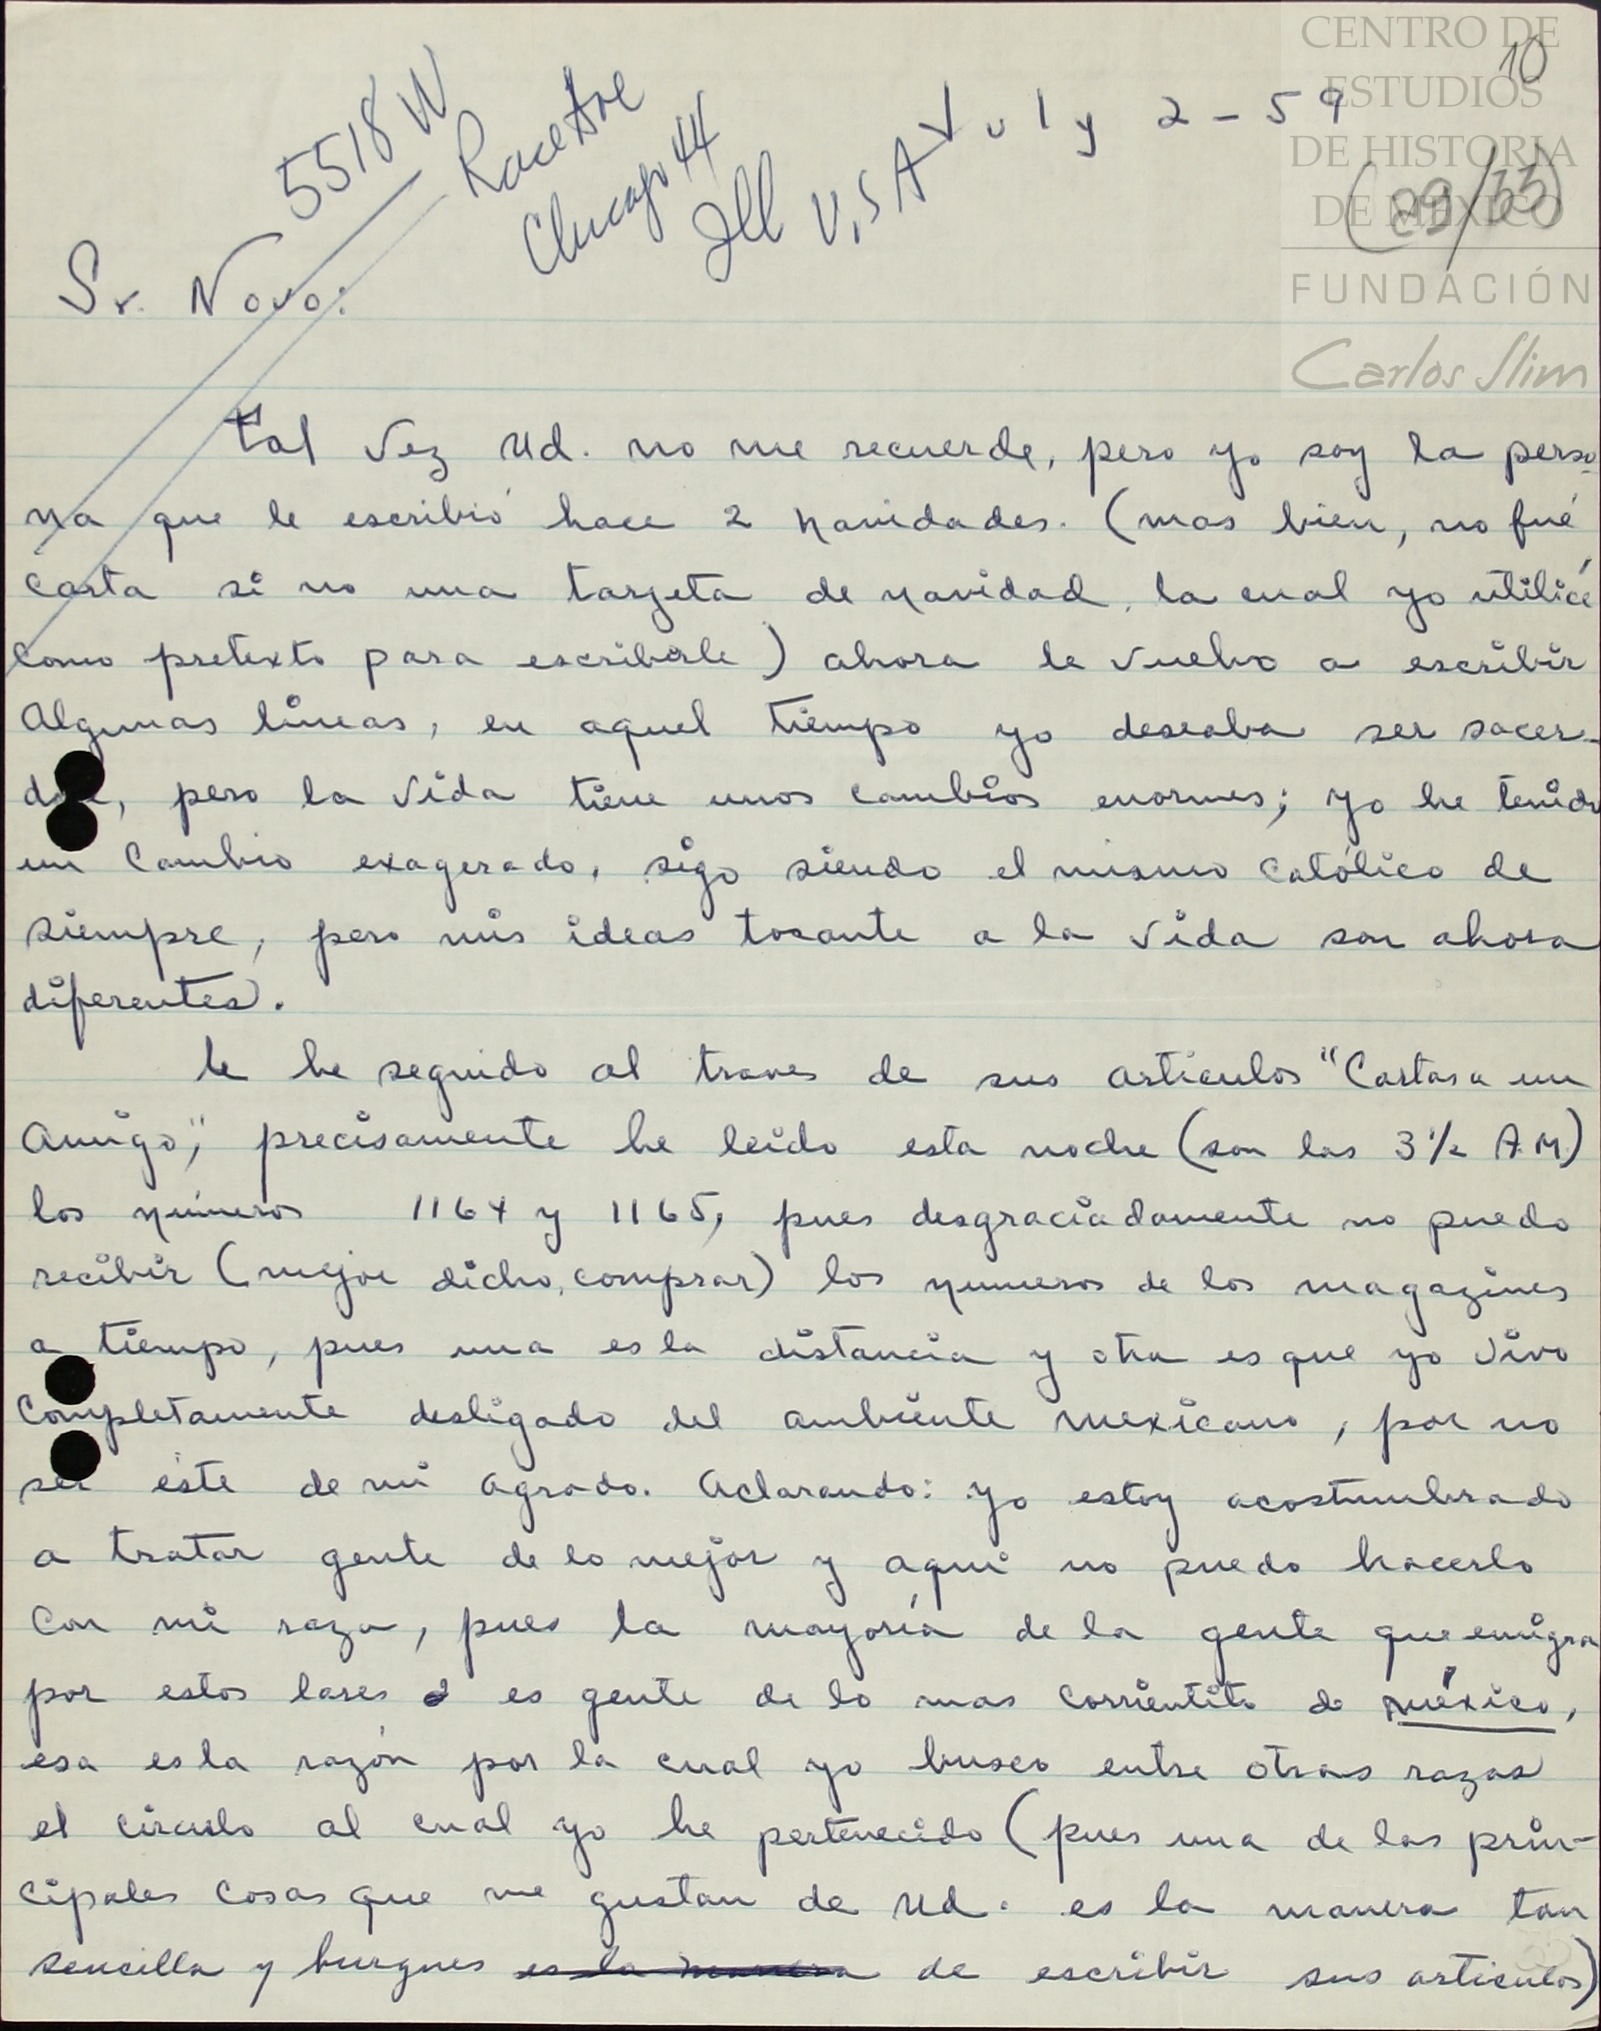 CENTRO DE
ESTUDIOS
DE HISTORIA
DE MÉXICO
FUNDACIÓN
Carlos Slim
10
July 2-59
5518 W
Race Ave
Chicago 44
Ill U.S A
Sr. Novo:
Tal vez Ud. no me recuerde, pero yo soy la perso
na que le escribió hace 2 navidades. (mas bien, no fué
carta si no una tarjeta de navidad, la cual yo utilicé
como pretexto para escribirle) ahora le vuelvo a escribir
Algunas lineas, en aquel tiempo yo deseaba ser sacer-
dote, pero la vida tiene unos cambios enormes; yo he tenido
un cambio exagerado, sigo siendo el mismo católico de
siempre, pero mis ideas tocante a la vida son ahora
diferentes.
le he seguido al traves de sus articulos "Cartas a un
Amigo", precisamente he leido esta noche (son las 3 1/2 A.M.)
los números 1164 y 1165, pues desgraciadamente no puedo
recibir (mejor dicho, comprar) los numeros de los magazines
a tiempo, pues una es la distancia y otra es que yo vivo
completamente desligado del ambiente mexicano, por no
ser éste de mi agrado. Aclarando: yo estoy acostumbrado
a tratar gente de lo mejor y aqui no puedo hacerlo
con mi raza, pues la mayoría de la gente que emigra
por estos lares es gente de lo mas corrientito de méxico,
esa es la razón por la cual yo busco entre otras razas
el circulo al cual yo he pertenecido (pues una de las prin-
cipales cosas que me gustan de Ud. es la manera tan
sencilla y burgues es la manera de escribir sus articulos)